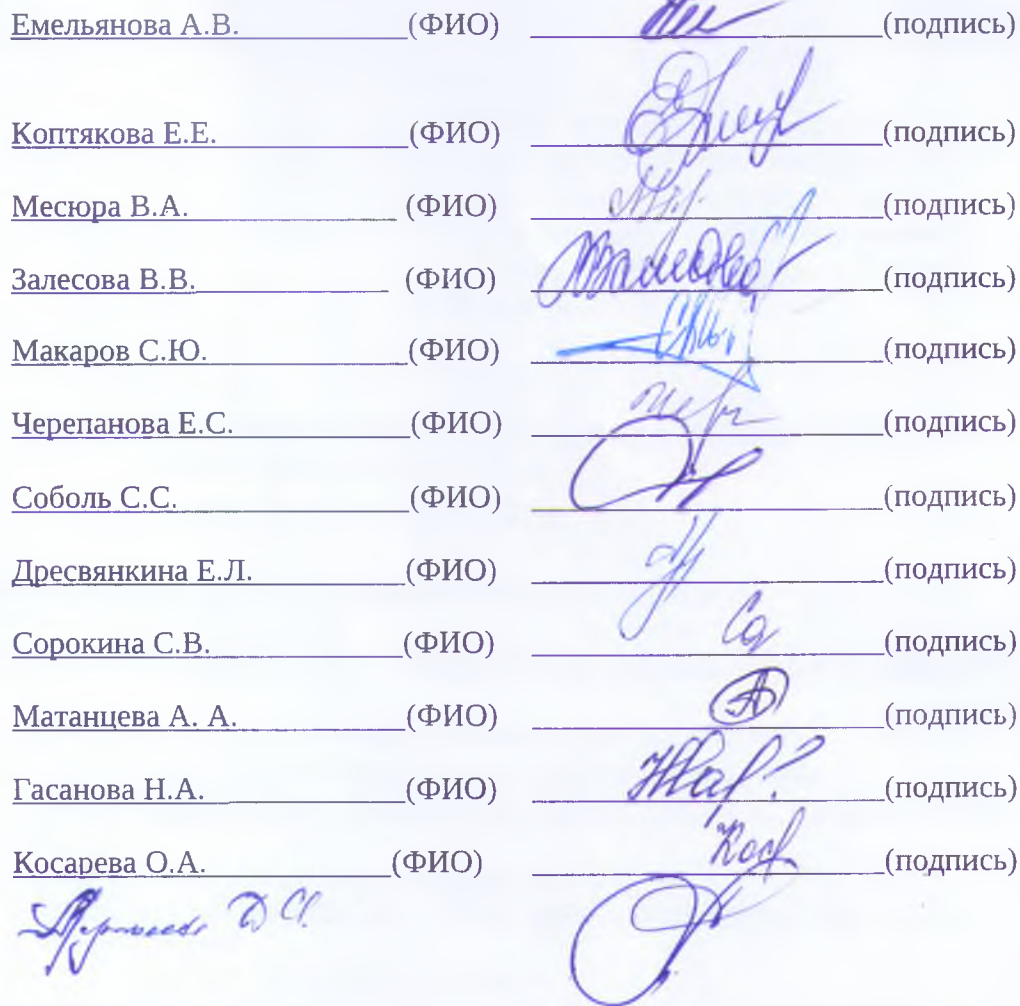 Емельянова А.В. (ФИО) (подпись)
Коптякова Е.Е. (ФИО) (подпись)
Месюра В.А. (ФИО) (подпись)
Залесова В.В. (ФИО) (подпись)
Макаров С.Ю. (ФИО) (подпись)
Черепанова Е.С. (ФИО) (подпись)
Соболь С.С. (ФИО) (подпись)
Дресвянкина Е.Л. (ФИО) (подпись)
Сорокина С.В. (ФИО) (подпись)
Матанцева А. А. (ФИО) (подпись)
Гасанова Н.А. (ФИО) (подпись)
Косарева О.А. (ФИО) (подпись)